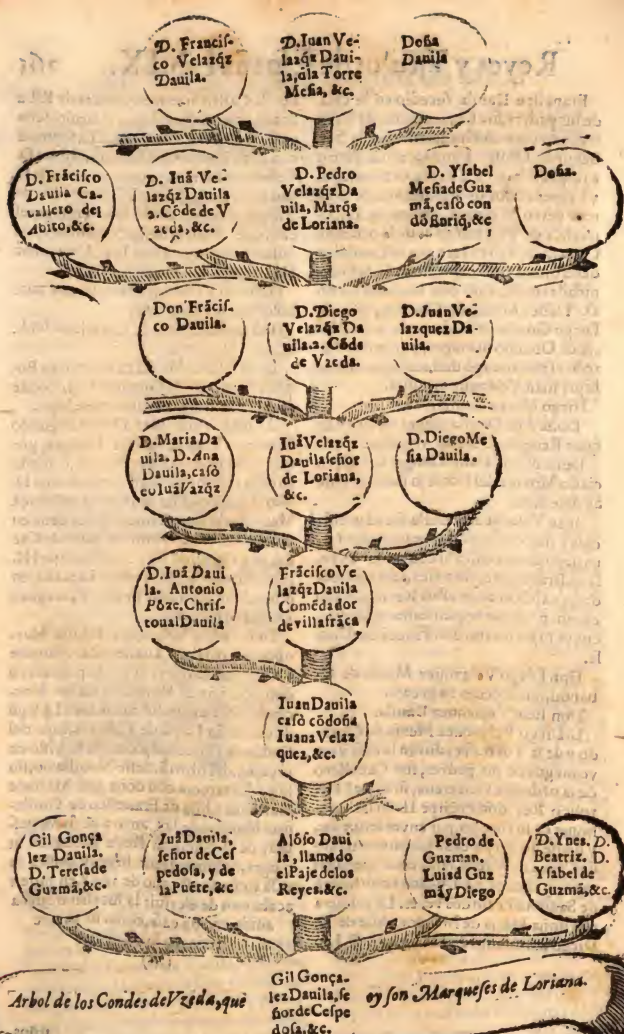 D. Francis-
co Velazq̃z
Dauila.
D. Iuan Ve-
lazq̃z Daui-
la, d̃la Torre
Mesia, &c.
Doña
Dauila
D. Frãcisco
Dauila Ca-
uallero del
Abito, &c.
D. Iuã Ve-
lazq̃z Dauila
2. Cõde de V
zeda, &c.
D. Pedro
Velazq̃zDa
uila, Marq̃s
de Loriana.
D. Ysabel
Mesia de Guz
mã, casò con
dõ Enriq̃, &c
Doña.
Don Frãcis-
co Dauila.
D. Diego
Velazq̃z Da
uila. 2. Cõde
de Vzeda.
D. Iuan Ve-
lazquez Da-
uila.
D. Maria Da
uila. D. Ana
Dauila, casò
cõ Iuã Vazq̃z
Iuã Velazq̃z
Dauila señor
de Loriana,
&c.
D. Diego Me
sia Dauila.
D. Iuã Daui
la. Antonio
Põze. Chris-
toual Dauila
Frãcisco Ve
lazq̃z Dauila
Comẽdador
de villafrãca
Iuan Dauila
casò cõ doña
Iuana Velaz
quez, &c.
Gil Gonça
lez Dauila.
D. Teresa de
Guzmã, &c.
Iuã Dauila,
señor de Ces
pedosa, y de
la Puẽte, &c
Alõso Daui
la, llamado
el Paje de los
Reyes. &c.
Pedro de
Guzman.
Luis d Guz
mã y Diego
D. Ynes. D.
Beatriz. D.
Ysabel de
Guzmã, &c.
Arbol de los Condes de Vzeda, que
Gil Gonça-
lez Dauila, se
ñor de Cespe
dosa, &c.
oy son Marqueses de Loriana.